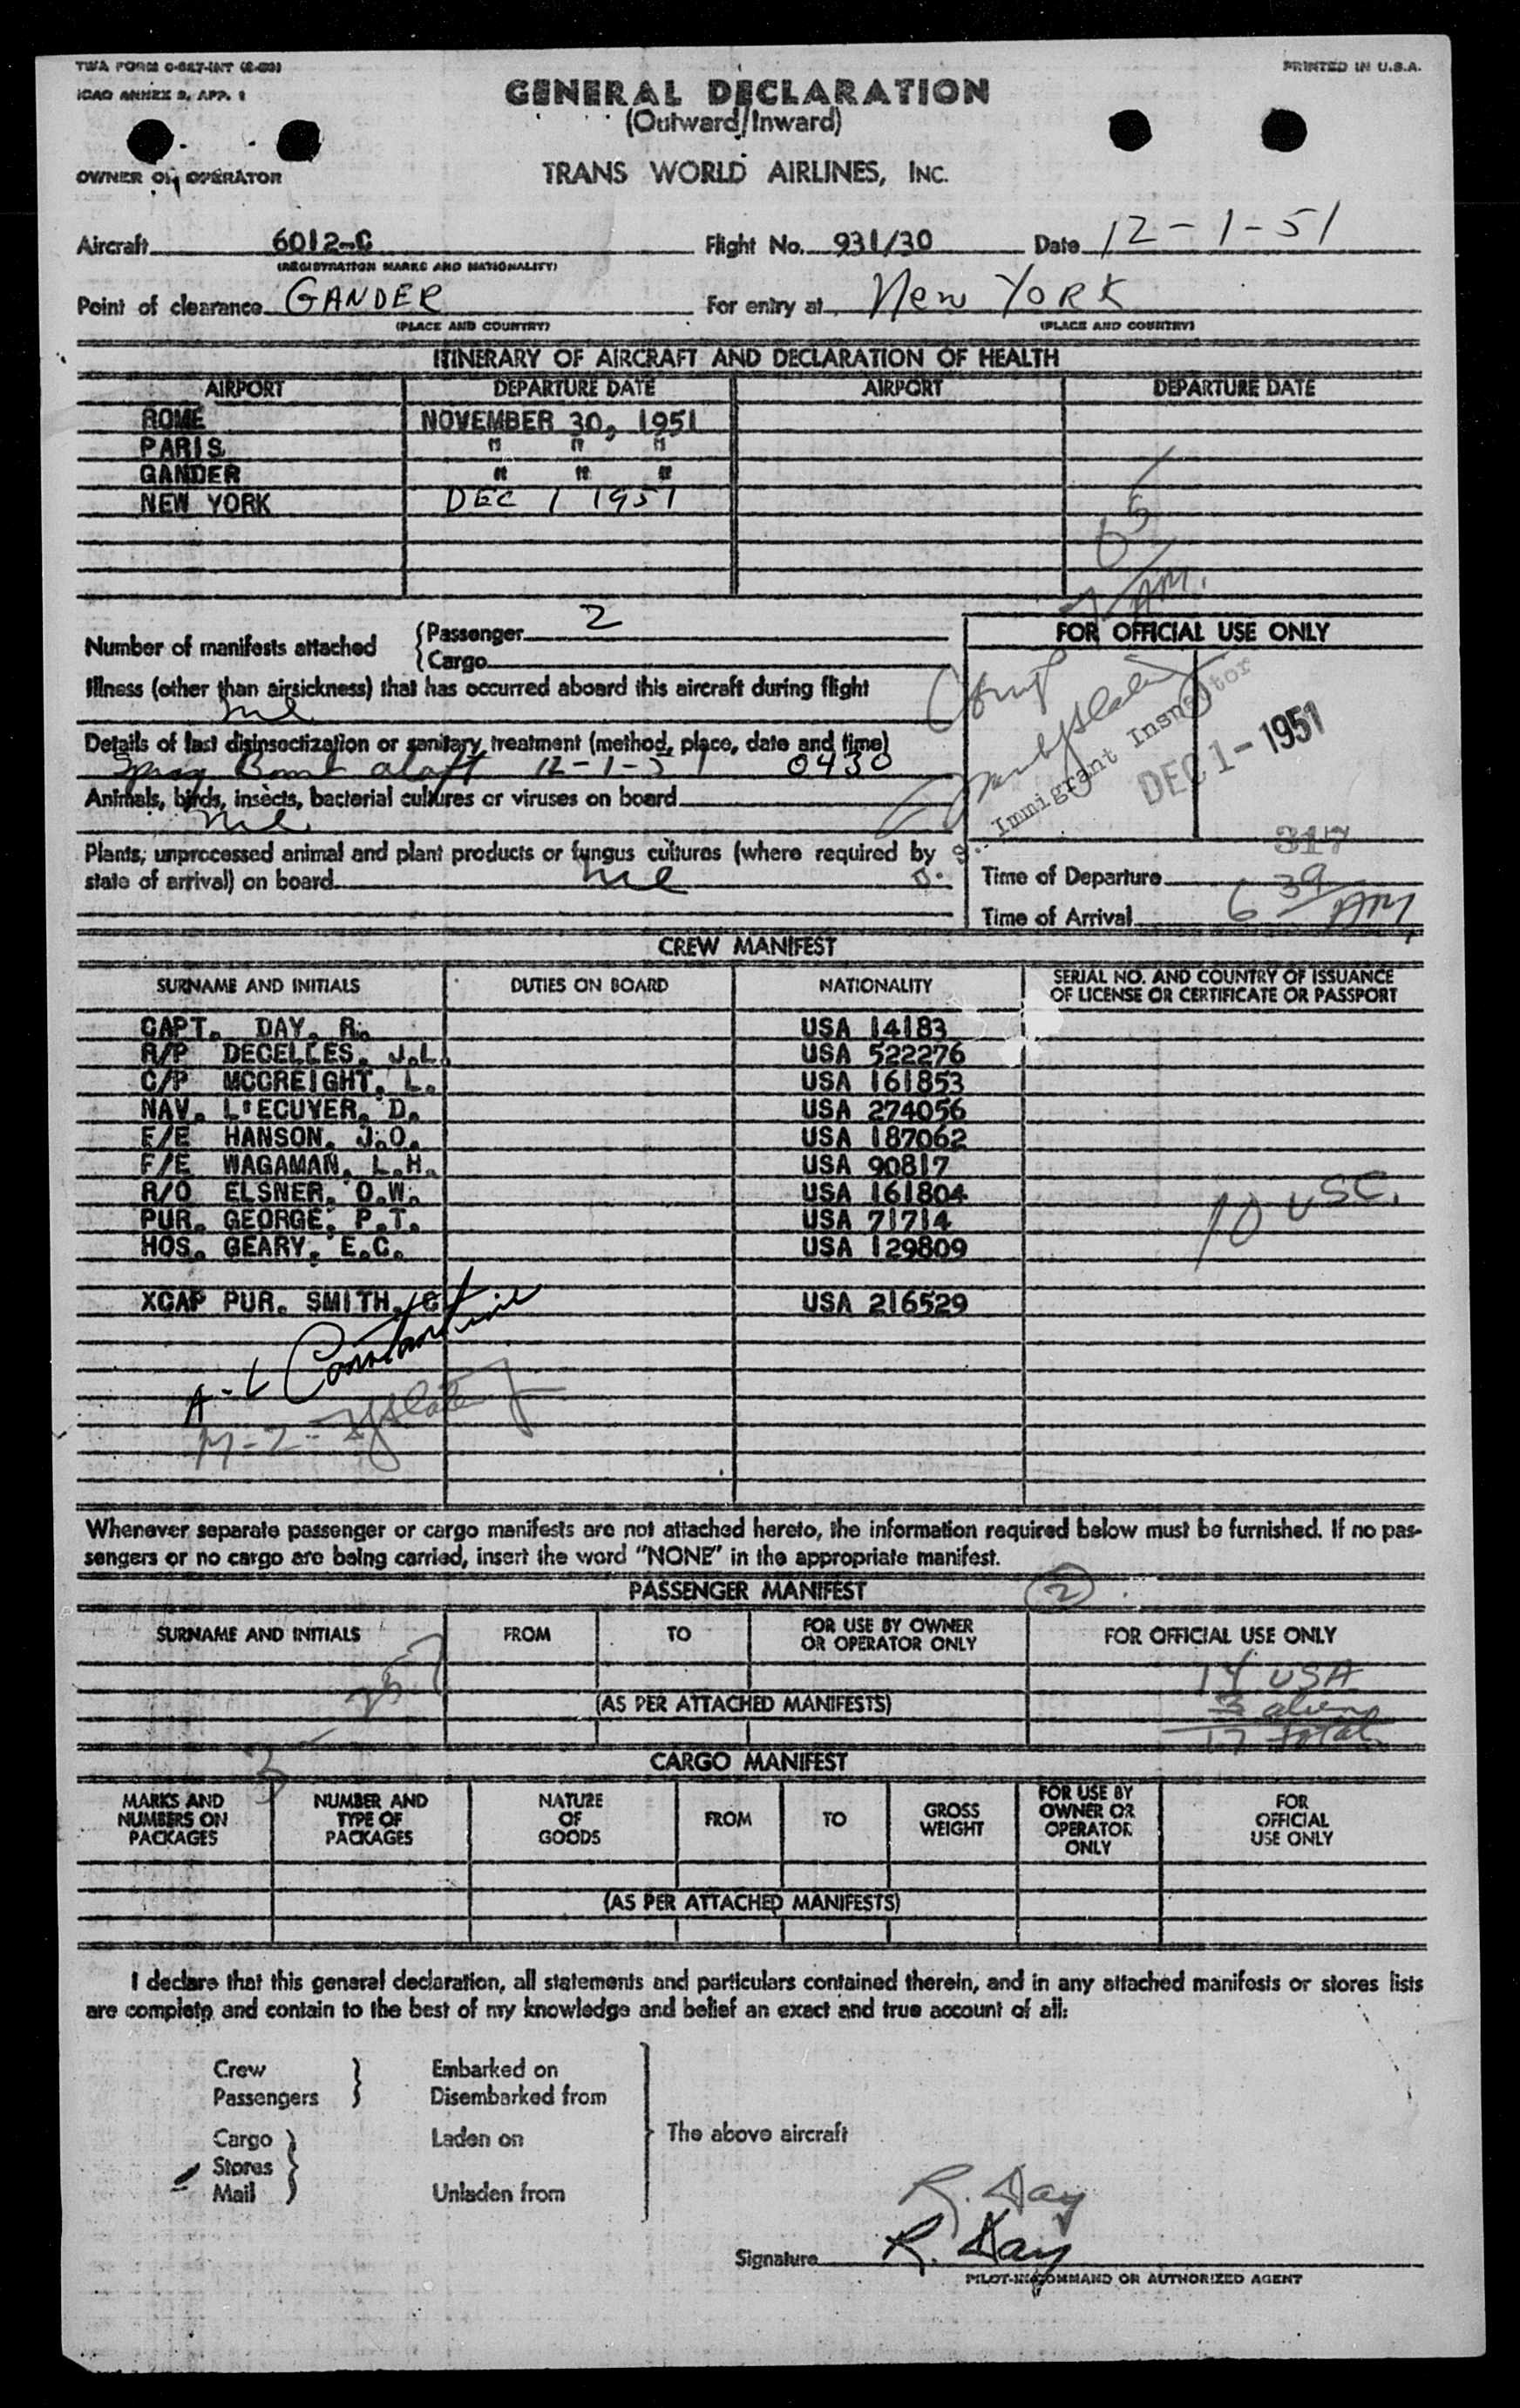 TWA FORM O-627-INT (6-50)
PRINTED IN U.S.A.
ICAO ANNEX 9, APP. 1
GENERAL DECLARATION
(Outward/Inward)
OWNER OR OPERATOR
TRANS WORLD AIRLINES, INC.
Aircraft 6012-C Flight No. 931/30 Date 12-1-51
(REGISTRATION MARKS AND NATIONALITY)
Point of clearance GANDER For entry at New YORK
(PLACE AND COUNTRY) (PLACE AND COUNTRY)
ITINERARY OF AIRCRAFT AND DECLARATION OF HEALTH
AIRPORT DEPARTURE DATE AIRPORT DEPARTURE DATE
ROME NOVEMBER 30, 1951
PARIS " " "
GANDER " " "
NEW YORK DEC 1 1951
AM.
Number of manifests attached
Passenger 2
Cargo
FOR OFFICIAL USE ONLY
Illness (other than airsickness) that has occurred aboard this aircraft during flight
nil
Immigrant Inspector
DEC 1 - 1951
Details of last disinsectization or sanitary treatment (method, place, date and time)
Spray Bomb aloft 12-1-51 0430
Animals, birds, insects, bacterial cultures or viruses on board
nil
317
Plants, unprocessed animal and plant products or fungus cultures (where required by
state of arrival) on board nil
Time of Departure
Time of Arrival 6 39 AM
CREW MANIFEST
SURNAME AND INITIALS DUTIES ON BOARD NATIONALITY SERIAL NO. AND COUNTRY OF ISSUANCE
OF LICENSE OR CERTIFICATE OR PASSPORT
CAPT. DAY, R. USA 14183
R/P DECELLES, J.L. USA 522276
C/P MCCREIGHT, L. USA 161853
NAV. L'ECUYER, D. USA 274056
F/E HANSON, J.O. USA 187062
F/E WAGAMAN, L.H. USA 90817
R/O ELSNER, O.W. USA 161804
PUR. GEORGE, P.T. USA 71714
10 USC.
HOS. GEARY, E.C. USA 129809
XCAP PUR. SMITH, C USA 216529
A-L Constantine
M-2-
Whenever separate passenger or cargo manifests are not attached hereto, the information required below must be furnished. If no pas-
sengers or no cargo are being carried, insert the word "NONE" in the appropriate manifest.
PASSENGER MANIFEST
2
SURNAME AND INITIALS FROM TO FOR USE BY OWNER
OR OPERATOR ONLY
FOR OFFICIAL USE ONLY
14 USA
(AS PER ATTACHED MANIFESTS)
3 aliens
17 total
CARGO MANIFEST
MARKS AND
NUMBERS ON
PACKAGES
NUMBER AND
TYPE OF
PACKAGES
NATURE
OF
GOODS
FROM
TO
GROSS
WEIGHT
FOR USE BY
OWNER OR
OPERATOR
ONLY
FOR
OFFICIAL
USE ONLY
(AS PER ATTACHED MANIFESTS)
I declare that this general declaration, all statements and particulars contained therein, and in any attached manifests or stores lists
are complete and contain to the best of my knowledge and belief an exact and true account of all:
Crew
Passengers
Embarked on
Disembarked from
Cargo
Stores
Mail
Laden on
Unladen from
The above aircraft
R. Day
Signature R. Day
PILOT-IN-COMMAND OR AUTHORIZED AGENT